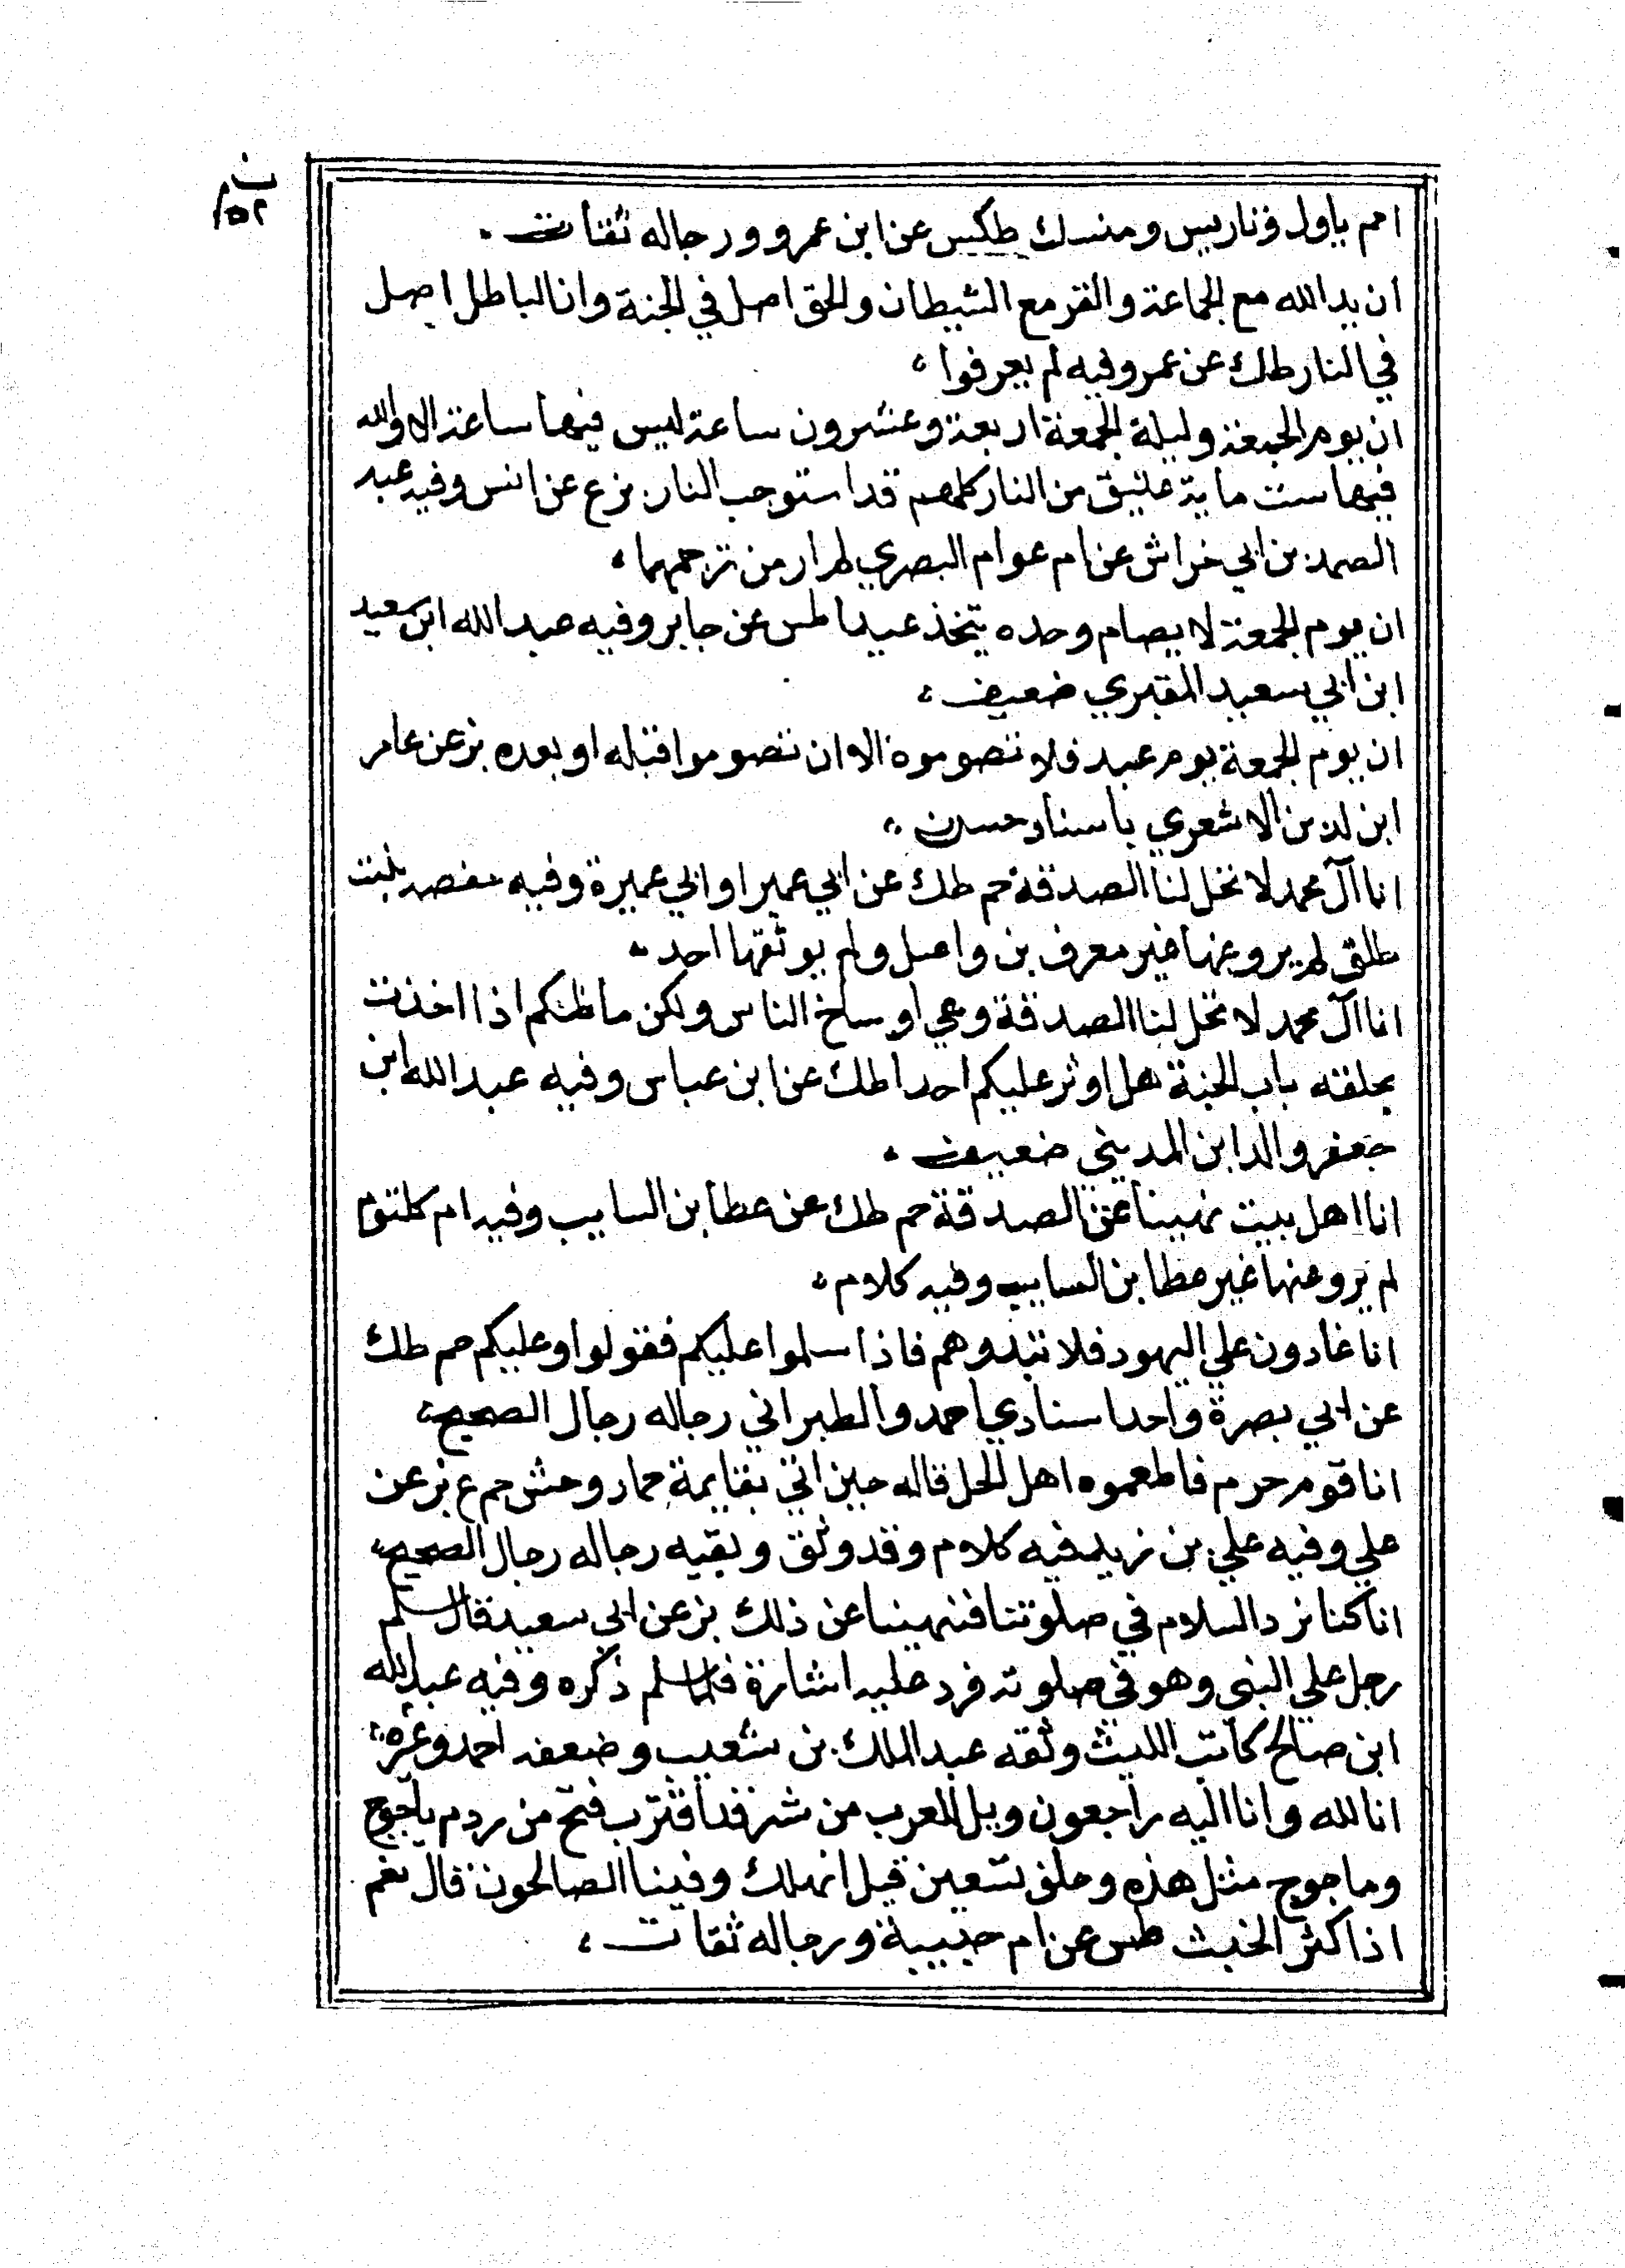 امم ياول وتاريس ومنسك طكس عن ابن عمرو ورجاله ثقات
ان يد الله مع الجماعة والفذ مع الشيطان والحق اصل في الجنة وان الباطل اصل
في النار طك عن عمر وفيه لم يعرفوا
ان يوم الجمعة وليلة الجمعة اربعة وعشرون ساعة ليس فيها ساعة الا ولله
فيها ست ماية عتيق من النار كلهم قد استوجب النار بزع عن انس وفيه عبد
الصمد بن ابي خراش عن ام عوام البصري لم ار من ترجمهما
ان يوم الجمعة لا يصام وحده يتخذ عيدا طس عن جابر وفيه عبد الله ابن سعيد
ابن ابي سعيد المقبري ضعيف
ان يوم الجمعة يوم عيد فلا تصوموه الا ان تصوموا قبله او بعده بز عن عامر
ابن لدين الاشعري باسناد حسن
انا آل محمد لا تحل لنا الصدقة حم طك عن ابي عمير او ابي عميرة وفيه حفصه بنت
طلق لم يرو عنها غير معرف بن واصل ولم يوثقها احد
انا آل محمد لا تحل لنا الصدقة وهي اوساخ الناس ولكن ما ظنكم اذا اخذت
بحلقه باب الجنة هل اوثر عليكم احدا طك عن ابن عباس وفيه عبد الله ابن
جعفر والد ابن المديني ضعيف
انا اهل بيت نهينا عن الصدقة حم طك عن عطا بن السايب وفيه ام كلثوم
لم يرو عنها غير عطا بن السايب وفيه كلام
انا غادون علي اليهود فلا تبدوهم فاذا سلموا عليكم فقولوا وعليكم حم طك
عن ابي بصرة واحد اسنادي احمد والطبراني رجاله رجال الصحيح
انا قوم حرم فاطعموه اهل الحل قاله حين اتي بقايمة حمار وحش حم ع بز عن
علي وفيه علي بن زيد فيه كلام وقد وثق وبقيه رجاله رجال الصحيح
انا كنا نرد السلام في صلوتنا فنهينا عن ذلك بز عن ابي سعيد قال سلم
رجل علي النبي وهو في صلوته فرد عليه اشارة فلما سلم ذكره وفيه عبد الله
ابن صالح كاتب الليث وثقه عبد الملك بن شعيب وضعفه احمد وغيره
انا لله وانا اليه راجعون ويل للعرب من شر قد اقترب فتح من ردم ياجوج
وماجوج مثل هذه وحلق تسعين قيل انهلك وفينا الصالحون قال نعم
اذا كثر الخبث طس عن ام حبيبة ورجاله ثقات